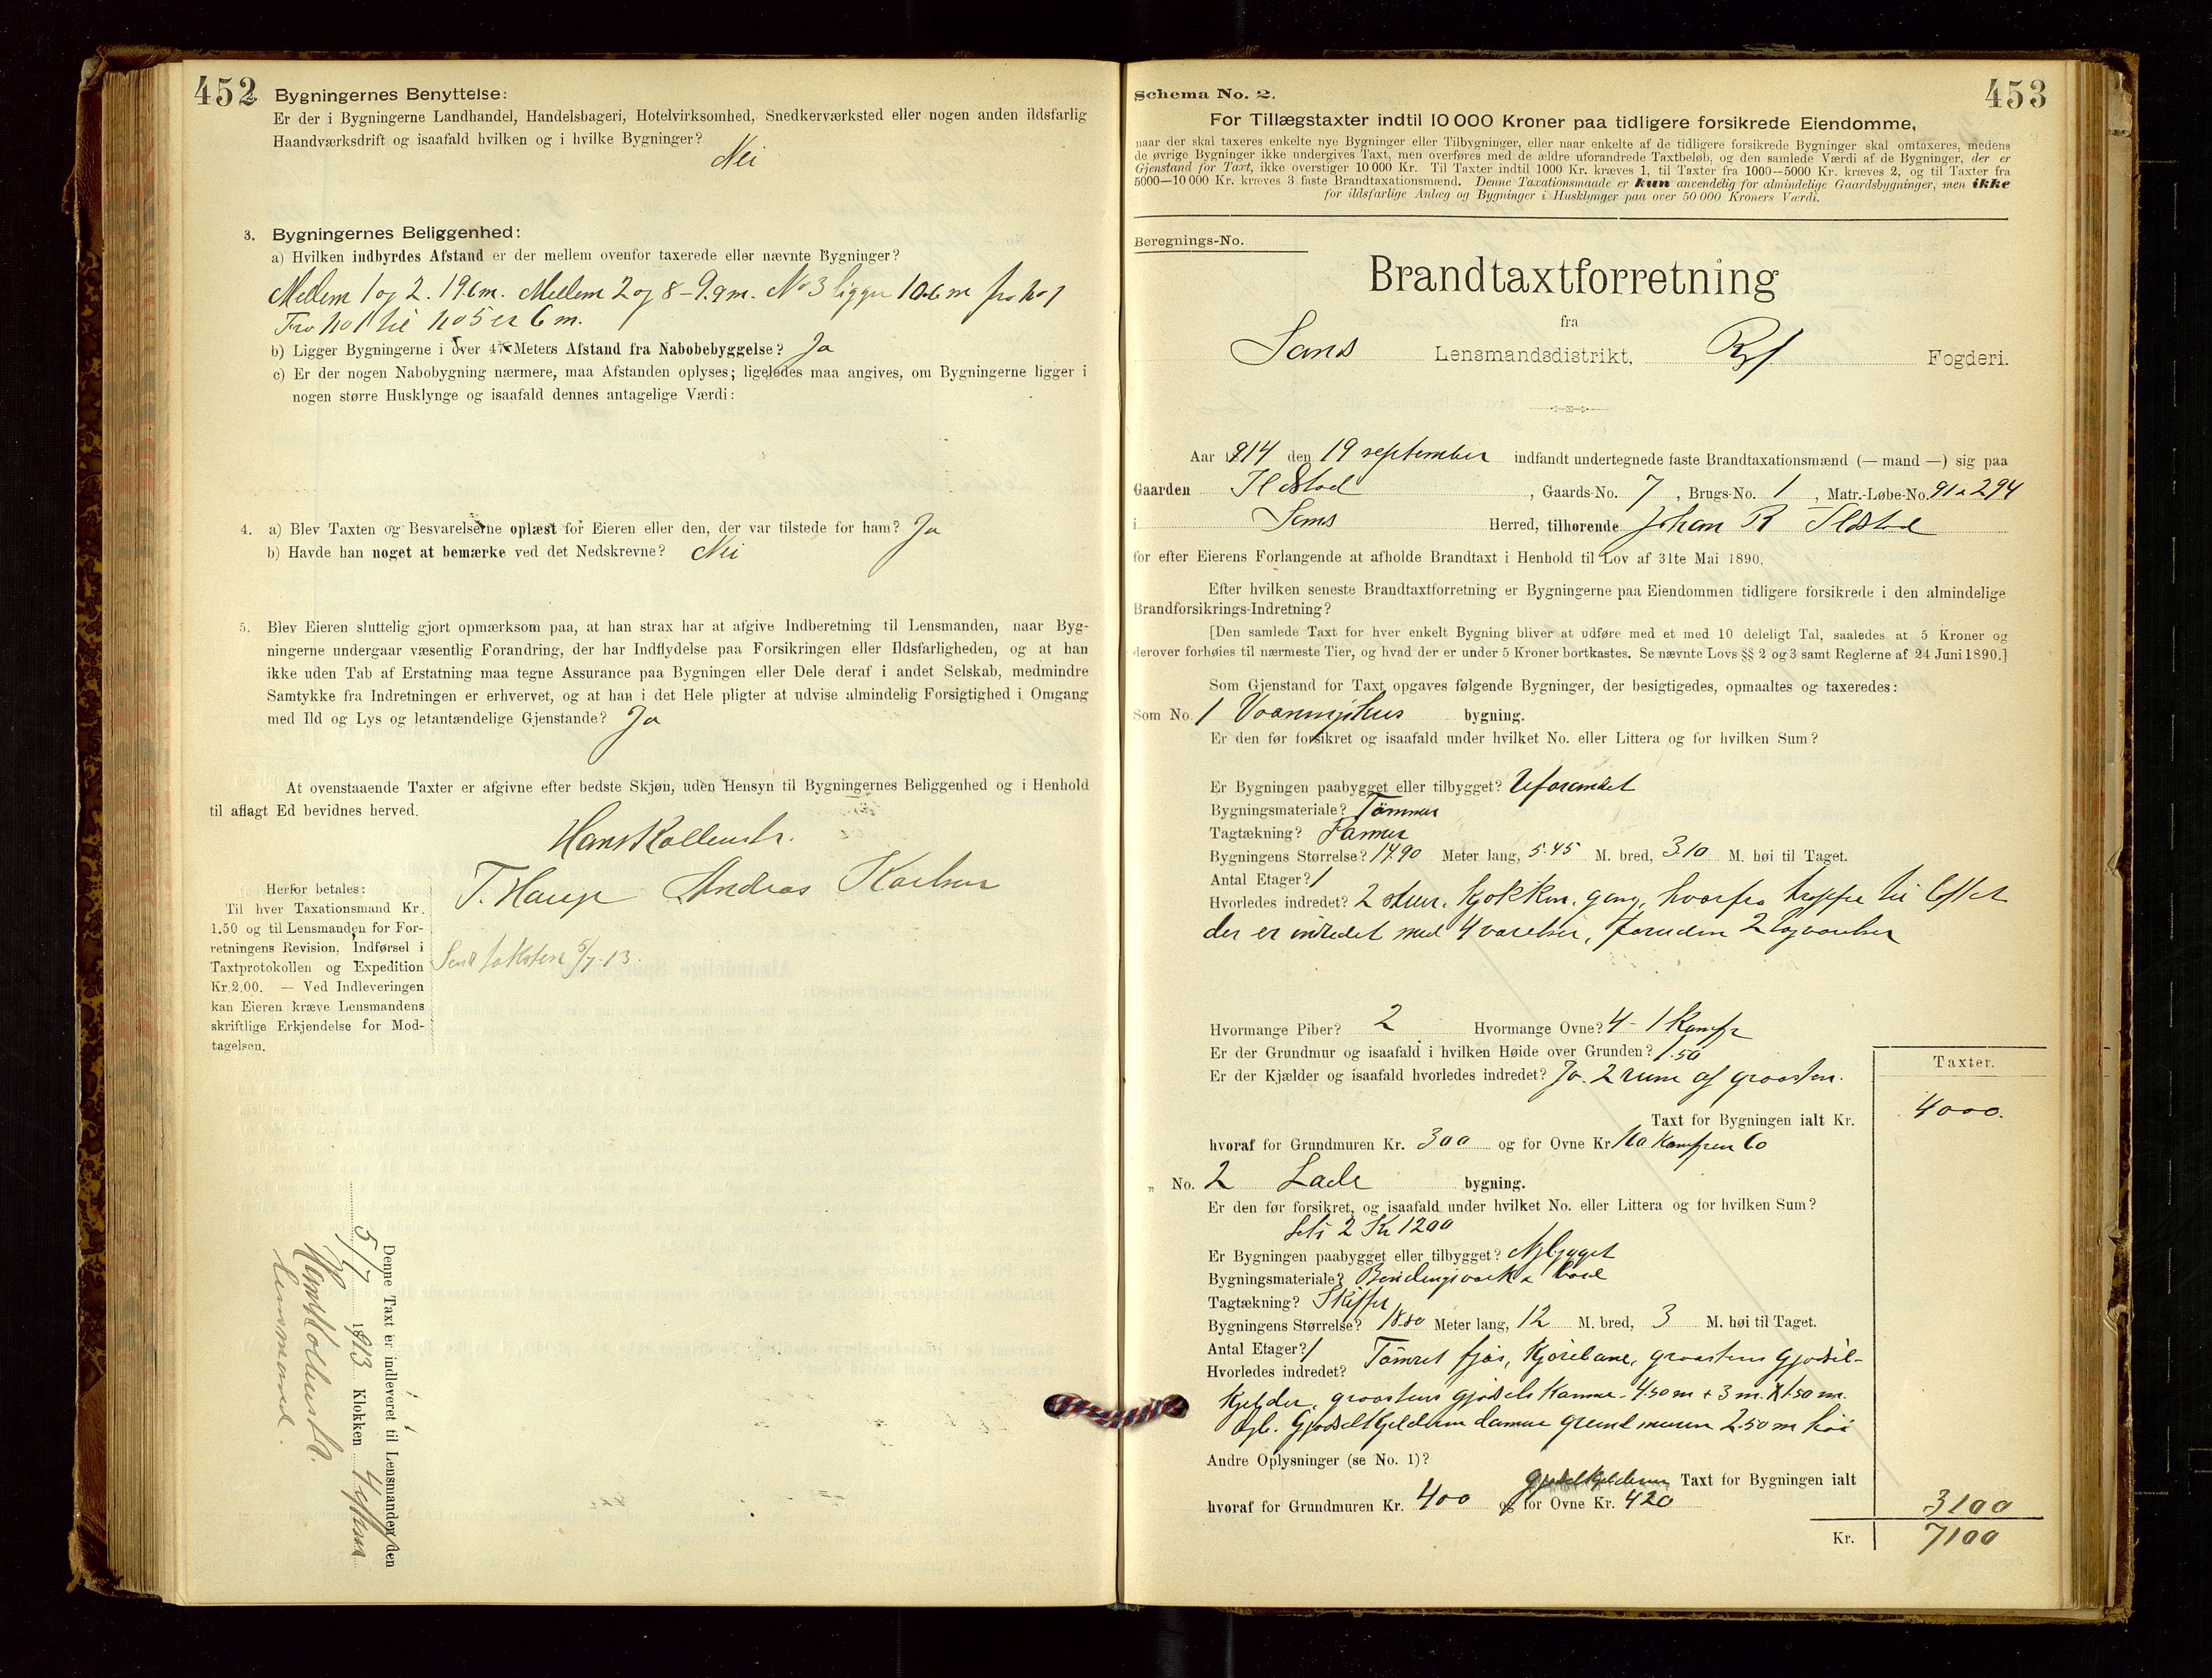 452
Bygningernes Benyttelse:
Er der i Bygningerne Landhandel, Handelsbageri, Hotelvirksomhed, Snedkerværksted eller nogen anden ildsfarlig
Haandværksdrift og isaafald hvilken og i hvilke Bygninger?
Nei
3. Bygningernes Beliggenhed:
a) Hvilken indbyrdes Afstand er der mellem ovenfor taxerede eller nævnte Bygninger?
Mellem 1 og 2. 19.6m. Mellem 2 og 8 - 9.9m. No 3 ligger 10.6 m fra no 1
Fra no 1 til no 5 er 6 m.
b) Ligger Bygningerne i over 47 Meters Afstand fra Nabobebyggelse? Ja
c) Er der nogen Nabobygning nærmere, maa Afstanden oplyses; ligeledes maa angives, om Bygningerne ligger i
nogen større Husklynge og isaafald dennes antagelige Værdi:
4. a) Blev Taxten og Besvarelserne oplæst for Eieren eller den, der var tilstede for ham? Ja
b) Havde han noget at bemærke ved det Nedskrevne? Nei
5. Blev Eieren sluttelig gjort opmærksom paa, at han strax har at afgive Indberetning til Lensmanden, naar Byg-
ningerne undergaar væsentlig Forandring, der har Indflydelse paa Forsikringen eller Ildsfarligheden, og at han
ikke uden Tab af Erstatning maa tegne Assurance paa Bygningen eller Dele deraf i andet Selskab, medmindre
Samtykke fra Indretningen er erhvervet, og at han i det Hele pligter at udvise almindelig Forsigtighed i Omgang
med Ild og Lys og letantændelige Gjenstande? Ja
At ovenstaaende Taxter er afgivne efter bedste Skjøn, uden Hensyn til Bygningernes Beliggenhed og i Henhold
til aflagt Ed bevidnes herved.
T. Hauge Andreas Karlsen
Herfor betales:
Til hver Taxationsmand Kr.
1.50 og til Lensmanden for For-
retningens Revision, Indførsel i
Taxtprotokollen og Expedition
Kr. 2.00. — Ved Indleveringen
kan Eieren kræve Lensmandens
skriftlige Erkjendelse for Mod-
tagelsen.
5/7-13.
Denne Taxt er indleveret til Lensmanden den
5/7 1913 Klokken 4
lensmand.
453
Schema No. 2.
For Tillægstaxter indtil 10 000 Kroner paa tidligere forsikrede Eiendomme,
naar der skal taxeres enkelte nye Bygninger eller Tilbygninger, eller naar enkelte af de tidligere forsikrede Bygninger skal omtaxeres, medens
de øvrige Bygninger ikke undergives Taxt, men overføres med de ældre uforandrede Taxtbeløb, og den samlede Værdi af de Bygninger, der er
Gjenstand for Taxt, ikke overstiger 10 000 Kr. Til Taxter indtil 1000 Kr. kræves 1, til Taxter fra 1000—5000 Kr. kræves 2, og til Taxter fra
5000—10 000 Kr. kræves 3 faste Brandtaxationsmænd. Denne Taxationsmaade er kun anvendelig for almindelige Gaardsbygninger, men ikke
for ildsfarlige Anlæg og Bygninger i Husklynger paa over 50 000 Kroners Værdi.
Beregnings-No.
Brandtaxtforretning
fra
Sands Lensmandsdistrikt, Ryf Fogderi.
Aar 1914 den 19 september indfandt undertegnede faste Brandtaxationsmænd (— mand —) sig paa
Gaarden Ilstad, Gaards-No. 7, Brugs-No. 1, Matr.-Løbe-No. 91 a 294
i Sands Herred, tilhørende Johan R Ilstad
for efter Eierens Forlangende at afholde Brandtaxt i Henhold til Lov af 31te Mai 1890.
Efter hvilken seneste Brandtaxtforretning er Bygningerne paa Eiendommen tidligere forsikrede i den almindelige
Brandforsikrings-Indretning?
[Den samlede Taxt for hver enkelt Bygning bliver at udføre med et med 10 deleligt Tal, saaledes at 5 Kroner og
derover forhøies til nærmeste Tier, og hvad der er under 5 Kroner bortkastes. Se nævnte Lovs §§ 2 og 3 samt Reglerne af 24 Juni 1890.]
Som Gjenstand for Taxt opgaves følgende Bygninger, der besigtigedes, opmaaltes og taxeredes:
Som No. 1 Vaaningshus bygning.
Er den før forsikret og isaafald under hvilket No. eller Littera og for hvilken Sum?
Er Bygningen paabygget eller tilbygget? Uforandret
Bygningsmateriale? Tømmer
Tagtækning?
Bygningens Størrelse? 14.90 Meter lang, 5.45 M. bred, 3.10 M. høi til Taget.
Antal Etager? 1
Hvorledes indredet? 2 stuer, kjøkken, gang, hvorfra trappe til loftet
der er indredet med 4 værelser, foruden 2
Hvormange Piber? 2 Hvormange Ovne? 4 - 1 Komfr
Er der Grundmur og isaafald i hvilken Høide over Grunden? 1.50
Er der Kjælder og isaafald hvorledes indredet? Ja. 2 rum af graasten.
Taxter.
Taxt for Bygningen ialt Kr. 4000.
hvoraf for Grundmuren Kr. 300 og for Ovne Kr. 160 Komfyren 60
„ No. 2 Lade bygning.
Er den før forsikret, og isaafald under hvilket No. eller Littera og for hvilken Sum?
2 Kr 1200
Er Bygningen paabygget eller tilbygget? Nybygget
Bygningsmateriale? Bindingsverk & bord
Tagtækning? Skiffer
Bygningens Størrelse? 18.80 Meter lang, 12 M. bred, 3 M. høi til Taget.
Antal Etager? 1
Hvorledes indredet? Tømret fjøs, Kjørebane, graastens Gjødsel-
kjelder, graastens gjødselskumme - 4.50m + 3 m. X 1.50 m.
Gjødselkjelderen danner grundmuren 2.50 m høi
Andre Oplysninger (se No. 1)?
gjødselkjelderen Taxt for Bygningen ialt
hvoraf for Grundmuren Kr. 400 og for Ovne Kr. 420 3100
Kr. 7100